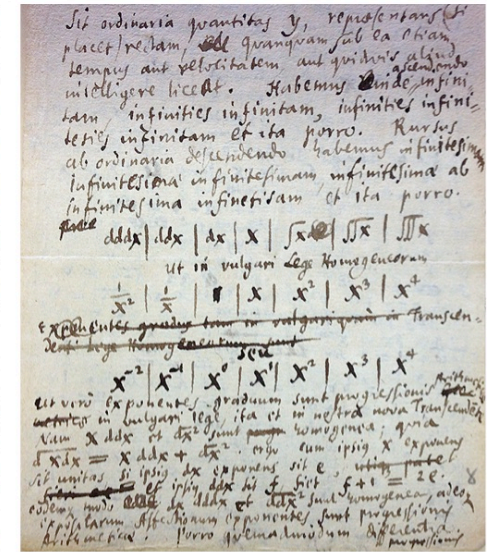 Sit ordinaria quantitas y, repraesentans (si
placet) rectam, quanquam sub ea etiam
tempus aut velocitatem aut quidvis aliud
intelligere liceat. Habemus inde ascendendo infini-
tam, infinities infinitam, infinities infini-
ties infinitam et ita porro. Rursus
ab ordinaria descendendo habemus infinitesimam
infinitesima infinitesimam, infinitesima ab
infinitesima et ita porro.
dddx | ddx | dx | x | ∫x | ∫∫x | ∫∫∫x
ut in vulgari Lege Homogeneorum
1/x² | 1/x | 1 | x | x² | x³ | x⁴
exponentes gradus tam in vulgari quam in Transcen-
seu
x⁻² | x⁻¹ | x⁰ | x¹ | x² | x³ | x⁴
Ut vero exponentes graduum sunt progressionis Arithmeticae
in vulgari lege, ita et in nostra nova Transcendente
Nam x ddx et dx² sunt homogenea, quia
d xdx = x ddx + dx². ergo cum ipsius x exponens
sit unitas, si ipsius dx exponens sit e,
et ipsius ddx sit f, fiet f + 1 = 2e.
eodem modo dx dddx et ddx² sunt homogenea, adeoque
exponentes, sunt progressionis
Arithmeticae. Porro quemadmodum differentia
progressionis
8